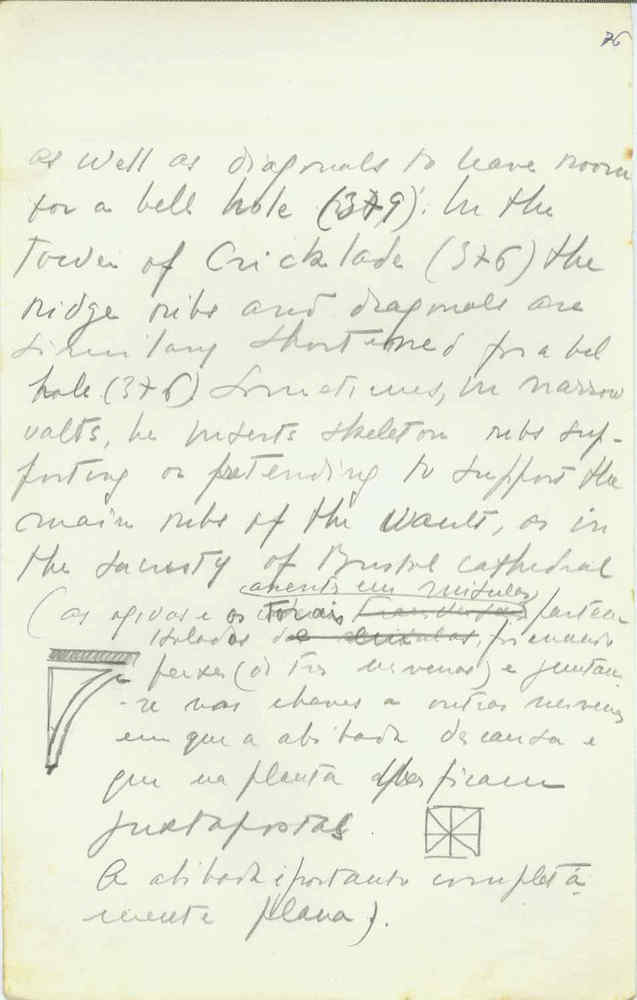 76
as well as diagonals to leave room
for a bell hole (379). In the
Tower of Cricklade (376) the
ridge ribs and diagonals are
similary shortened for a bel
hole (376) Sometimes, in narrow
valts, he inserts skeleton ribs sup-
porting or pretending to support the
main ribs of the vault, as in
the sacristy of Bristol cathedral
assents em misulas
(as ogivas e os torais partem
isolados formando
feixes (de tres nervuras) e juntam
-se nas chaves a outras nervuras
em que a abobada descansa e
que na planta ficam
juxtapostas.
A abobada é portanto completa
mente plana).